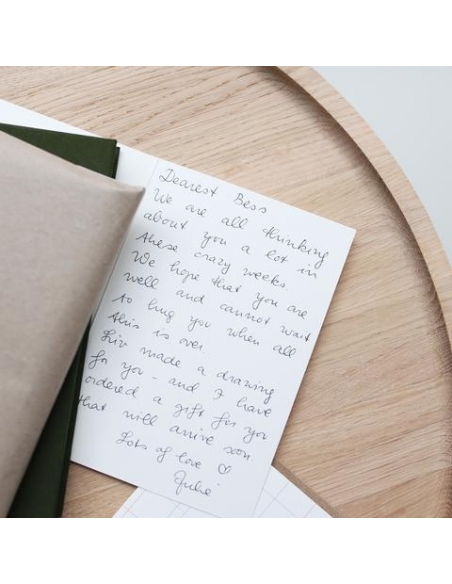 Dearest Bess
We are all thinking
about you a lot in
these crazy weeks.
We hope that you are
well and cannot wait
to hug you when all
this is over.
Liv made a drawing
for you - and I have
ordered a gift for you
that will arrive soon.
Lots of love ♡
Julie